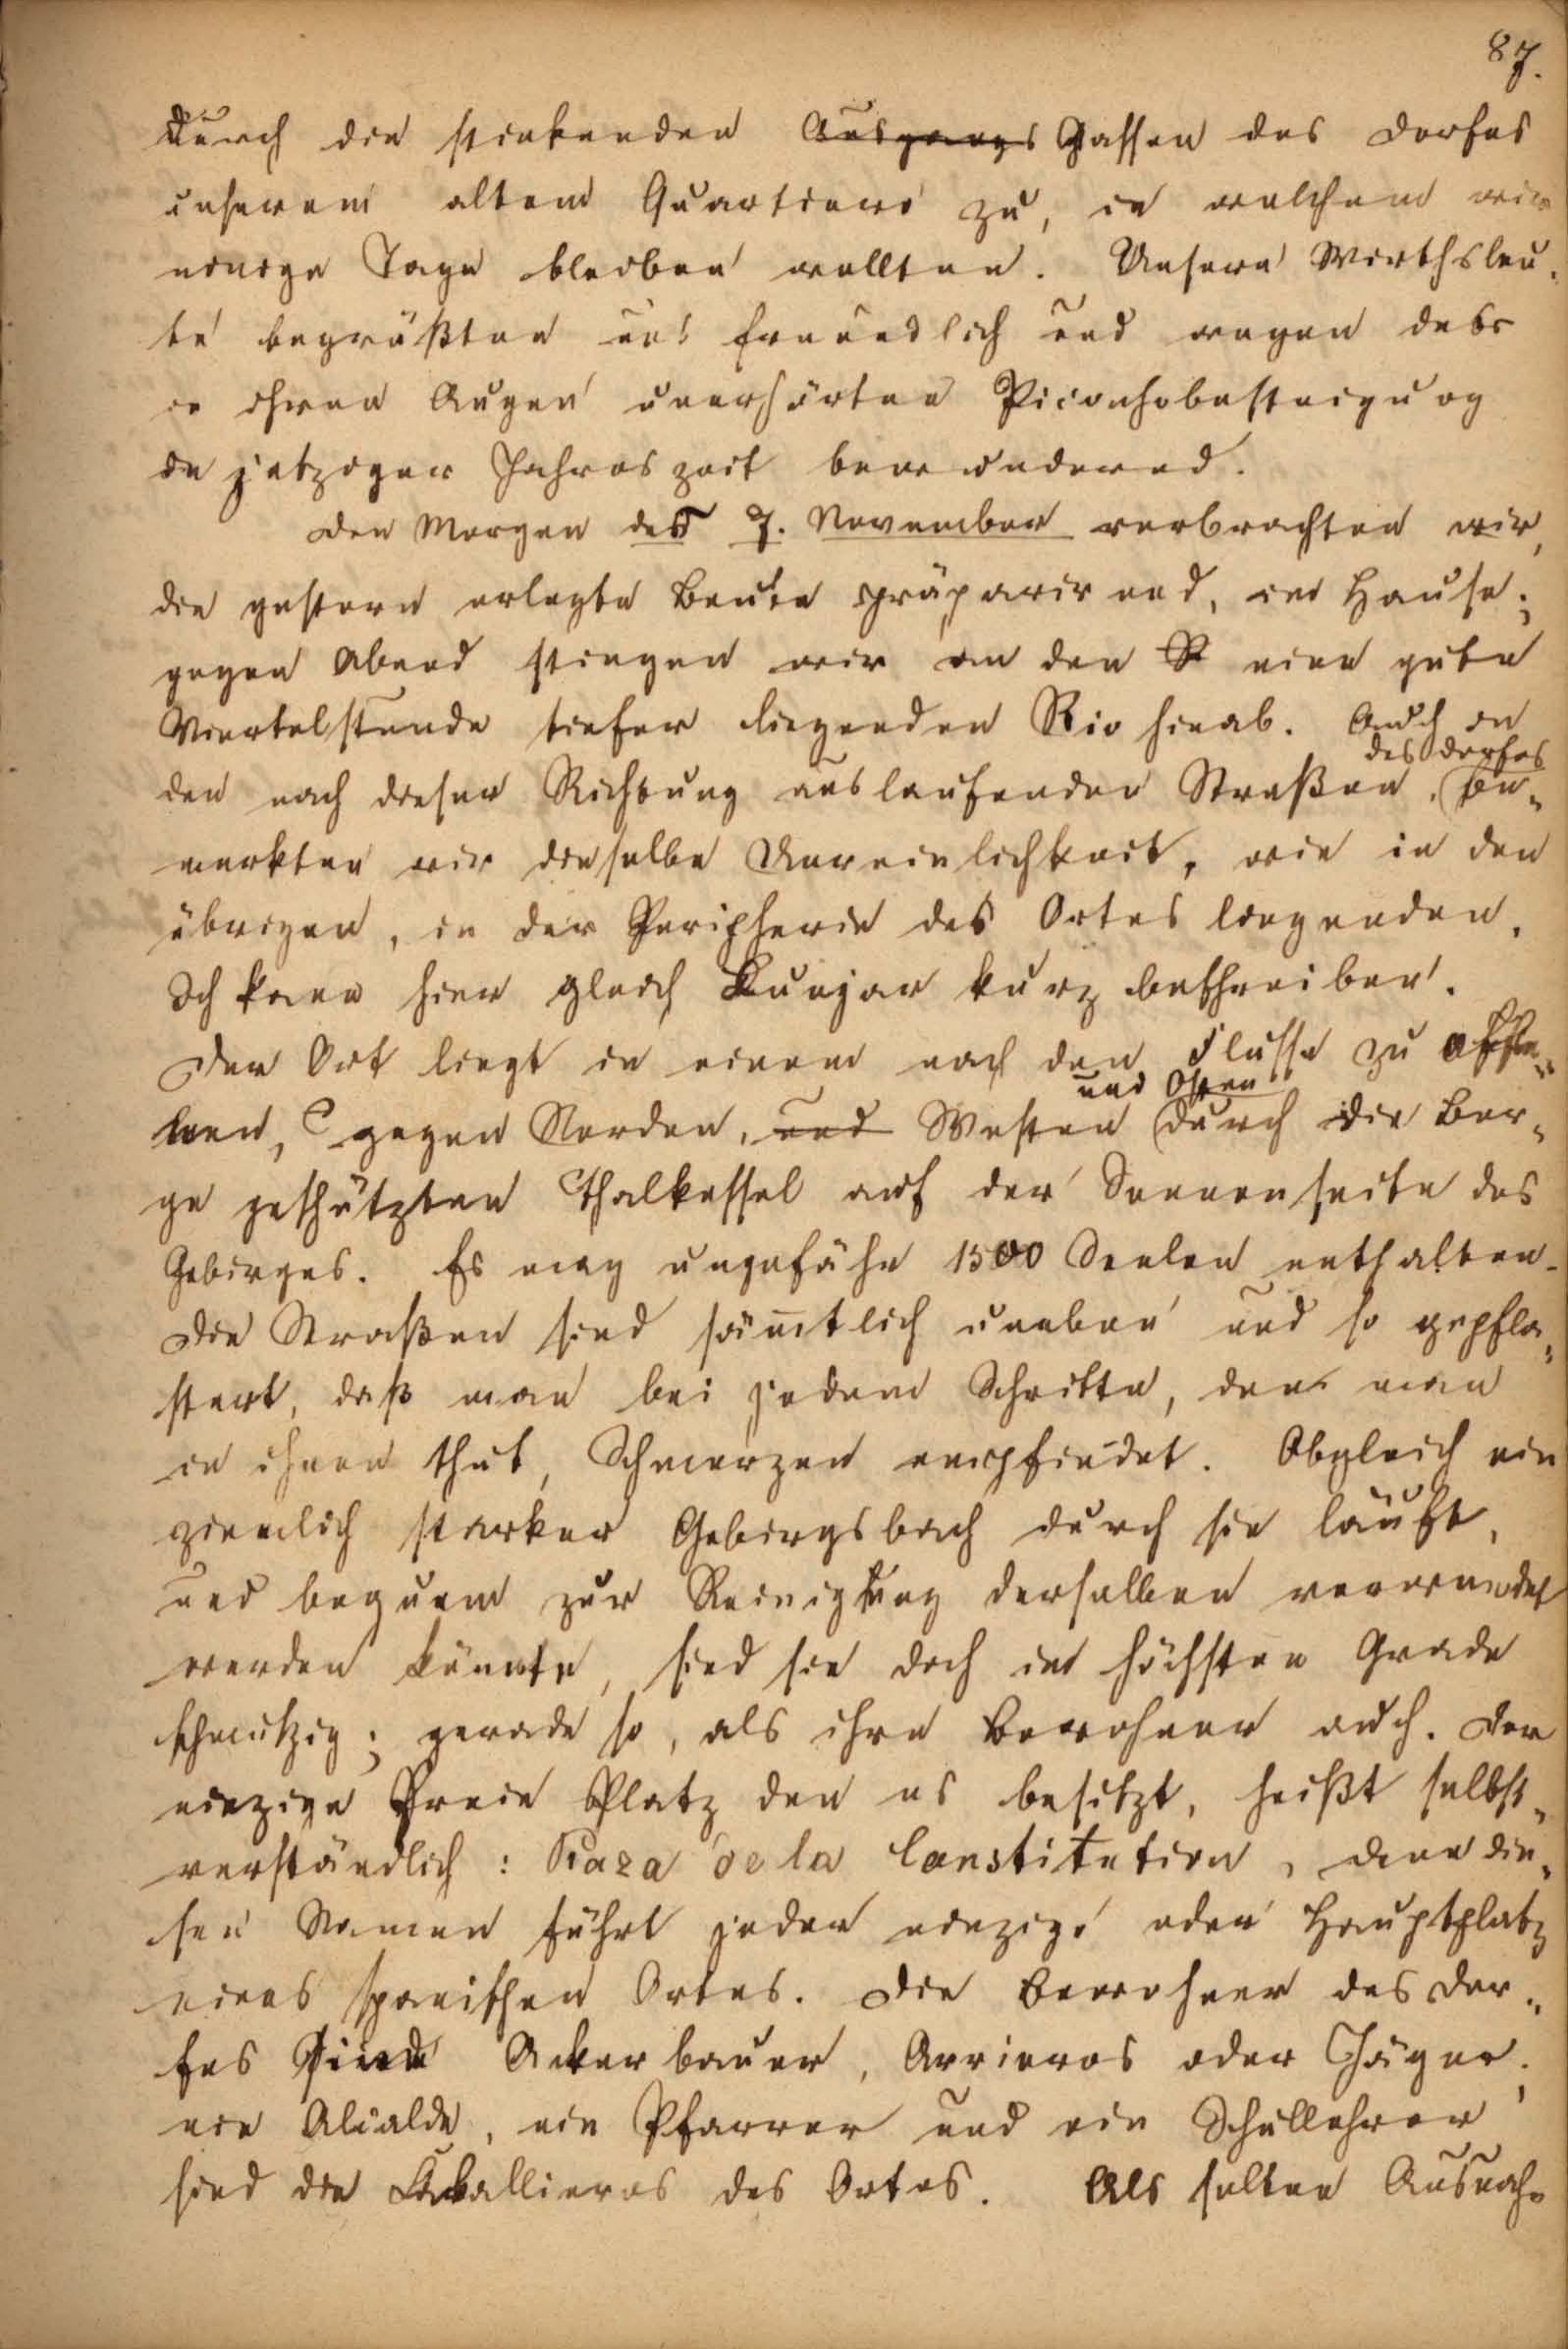 87.
durch die stinkenden Ausgangs Gassen des Dorfes
unserem alten Quartiere zu, in welchem wir
einige Tage bleiben wollten. Unsere Wirthsleu-
te begrüßten uns freundlich und wegen der
in ihren Augen unerhörten Picachobesteigung
in jetziger Jahreszeit bewundernd.
Den Morgen des 7. November verbrachten wir,
die gestern erlegte Beute präparirend, im Hause;
gegen Abend stiegen wir an den R eine gute
Viertelstunde tiefer liegenden Rio hinab. Auch in
des Dorfes
den nach dieser Richtung auslaufenden Straßen, be-
merkten wir dieselbe Unreinlichkeit, wie in den
übrigen, in der Peripherie des Ortes liegenden.
Ich kann hier gleich Quejar kurz beschreiben.
Der Ort liegt in einem nach dem Flusse zu offe-
und Osten
nen, gegen Norden, und Westen durch die Ber-
ge geschützten Thalkessel auf der Sonnenseite des
Gebirges. Es mag ungefähr 1500 Seelen enthalten.
Die Straßen sind sämtlich uneben und so gepfla-
stert, daß man bei jedem Schritte, den man
in ihnen thut, Schmerzen empfindet. Obgleich ein
ziemlich starker Gebirgsbach durch sie läuft,
und bequem zur Reinigung derselben verwendet
werden könnte, sind sie doch im höchsten Grade
schmutzig; gerade so, als ihre Bewohner auch. Der
einzige freie Platz den es besitzt, heißt selbst-
verständlich: Plaza de la Constitution, denn die-
sen Namen führt jeder einzige oder Hauptplatz
eines spanischen Ortes. Die Bewohner des Dor-
fes sind Ackerbauer, Arrieros oder Jäger;
ein Alcalde, ein Pfarrer und ein Schullehrer
sind die Caballieros des Ortes. Als selten Ausnah-